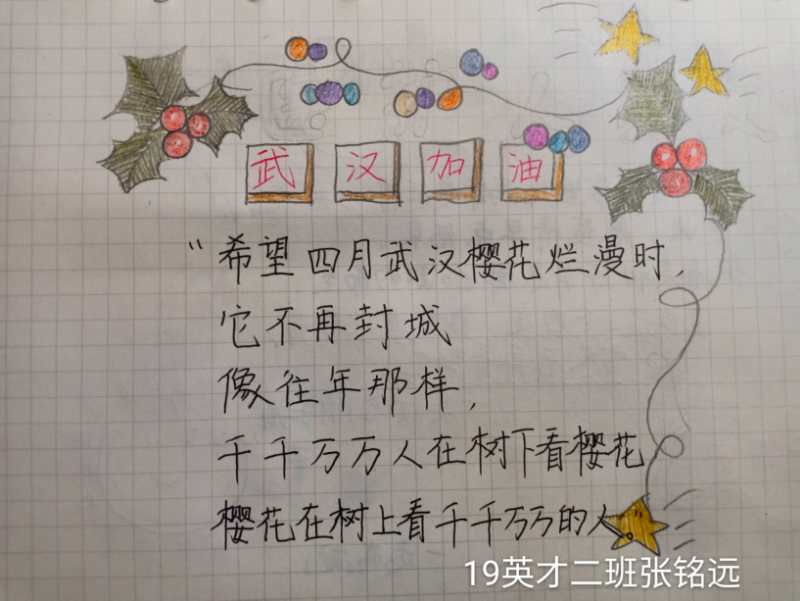 武汉加油
“希望四月武汉樱花烂漫时，
它不再封城
像往年那样，
千千万万人在树下看樱花
樱花在树上看千千万万的人。
19英才二班张铭远